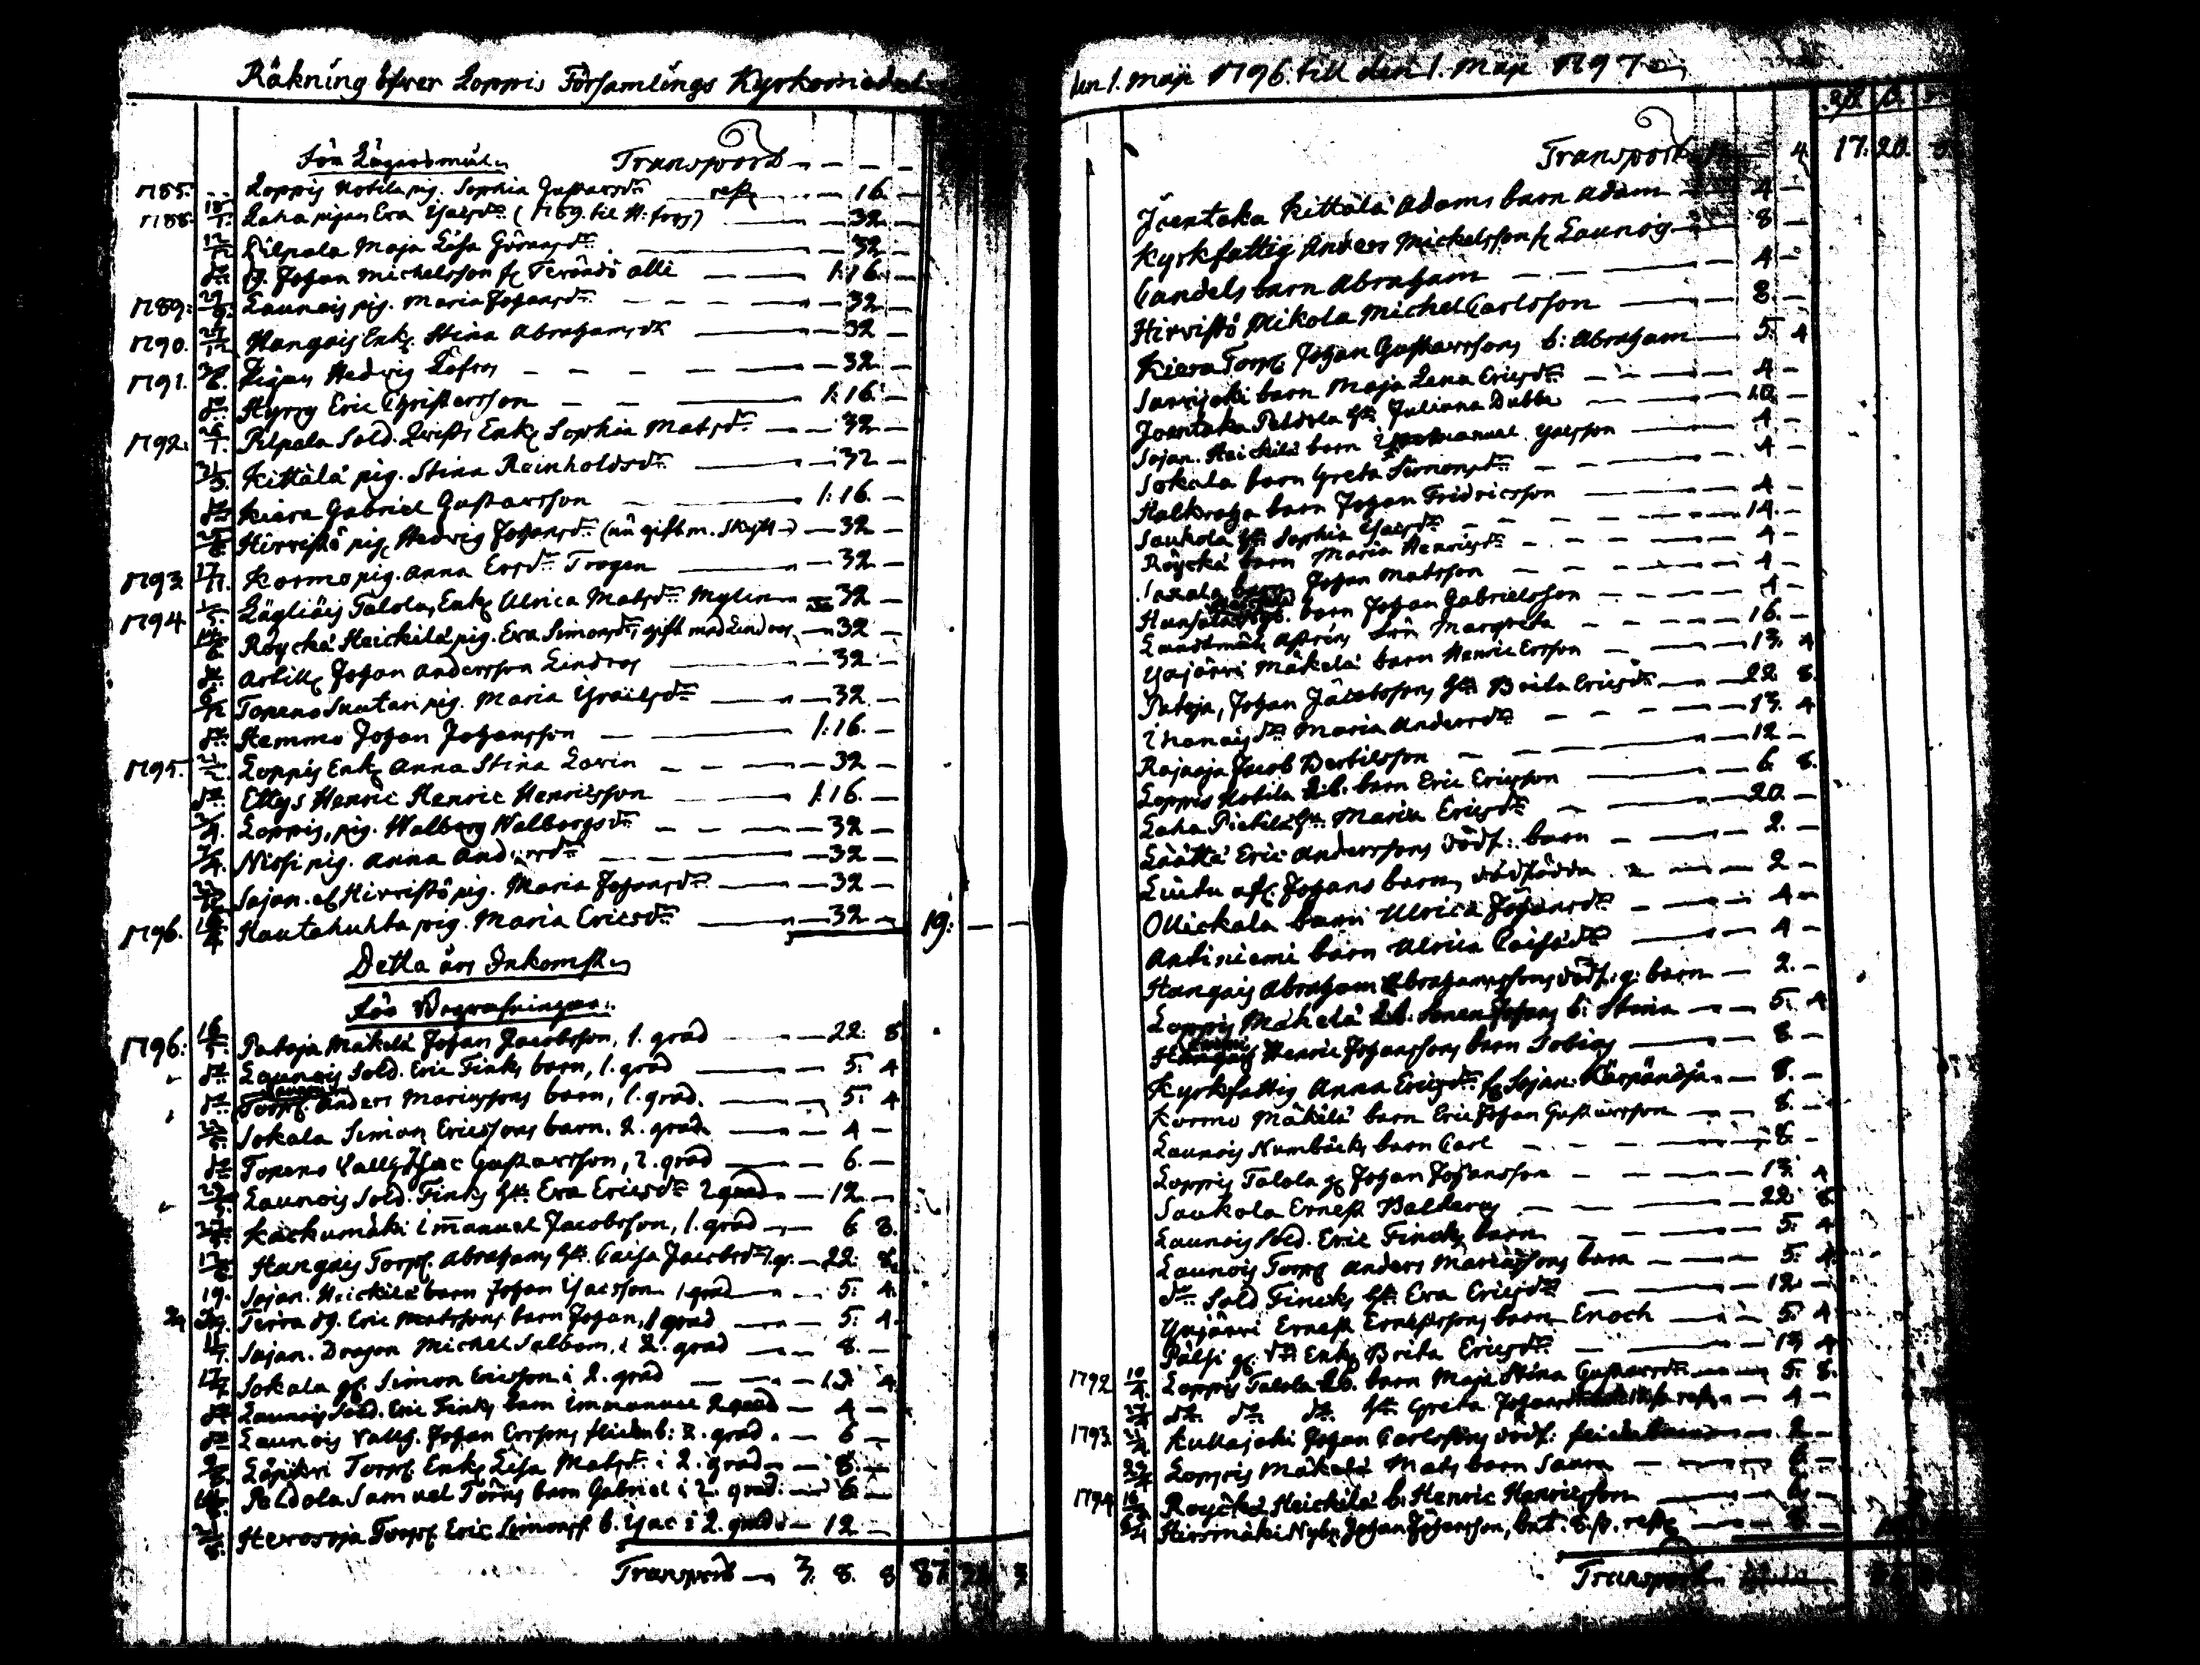 Räkning öfver Loppis Församlings Kyrkomedel
För Lägersmåln
Transport - - - -
1785. Loppis Kotila pig. Sophia Gustafsdr rest - 16. -
1788. Laha pigan Eva Isacsdr (1789 til H: fors) - 32 -
Kilpala Maja Lisa Göransdr - 32 -
do dg. Johan Michelsson fr Teränsö alli - 1:16. -
1789: Launois pig. Maria Johansdr - 32 -
1790. Hangais Enk. Stina Abrahamsdr - 32 -
1791. Pigan Hedvig Löfros - 32 -
do Hyrsy Eric Christersson - 1:16. -
1792. Pilpala Sold. Qvists Enk. Sophia Matsdr - 32 -
Kittälä pig. Stina Reinholdsdr - 32 -
do Kiera Gabriel Gustafsson - 1:16. -
Hirvistö pig. Hedvig Johansdr (nu gift m. Skytt) - 32 -
1793 17/11. Kormo pig. Anna Ersdr Trogen - 32 -
1794 Lägliäis Talola, Enk. Ulrica Matsdr Mylin - 32 -
Röyckä Heickilä pig. Eva Simonsdr, gift med Lindros - 32 -
do Artill. Johan Andersson Lindros - 32 -
Topeno Suutari pig. Maria Israelsdr - 32 -
do Hemmo Johan Johansson - 1:16. -
1795. Loppis Enk. Anna Stina Lavin - 32 -
do Ellys Henric Henric Henricsson - 1:16. -
Loppis, pig. Walborg Walborgsdr - 32 -
Nissi pig. Anna Andersdr - 32 -
Sajan. et Hirvistö pig. Maria Johansdr - 32 -
1796. Hautahuhta pig. Maria Ericsdr - 32 - 19: - -
Detta års Inkomsten
För Begrafningar.
1796: 16/5. Pataja Mäkelä Johan Jacobsson, 1. grad - 22: 8
do Launois Sold. Eric Finks barn, 1. grad - 5: 4
do Launois Torp. Anders Mariæssons barn, 1. grad. - 5: 4
Sokala Simon Ericssons barn. 2. grad - 4 -
do Topeno Vallg Isac Gustafsson, 2. grad - 6. -
Launois Sold. Finks Hu. Eva Ericsdr 2 grad - 12. -
Käckumäki Immanuel Jacobsson, 1. grad - 6 8.
Hangais Torp. Abrahams Hu. Caisa Jacobsdr 1. g. - 22: 8.
19. Sajan. Heickilä barn Johan Isacsson 1 grad - 5: 4.
Terra dg. Eric Matssons barn Johan, 1 grad - 5: 4.
Sajan. Dragon Michel Salbom, i 2. grad - 8. -
Sokala gl. Simon Ericsson i 2. grad - 13: 4
do Launois Sold. Eric Finks barn Immanuel 2 grad - 4 -
do Launois Vallg. Johan Erssons flicka b: 2. grad. - 6 -
Läyliäri Torp. Enk. Lisa Matsdr i 2. grad - 8. -
Peldola Samuel Törns barn Gabriel i 2. grad. - 6 -
Herosoja Torp. Eric Simonss b. Isac i 2. grad - 12 -
Transport - 3. 8. 8 87.
den 1. Maji 1796. till den 1. Maji 1797
Transport 4 17: 20.
Joentaka Kittälä Adams barn Adam - 4 -
Kyrkfattig Anders Mickelsson fr Launois - 8 -
Candels barn Abraham - 4 -
Hirvistö Mikola Michel Carlsson - 8. -
Kiera Torp. Johan Gustafssons b: Abraham - 5: 4
Sarvijoki barn Maja Lena Ericsdr - 4 -
Joentaka Peldola Hu. Juliana Dubbe - 10. -
Sajan. Heickilä barn Immanuel Isacsson - 4 -
Sokala barn Greta Simonsdr - 4 -
Halkraha barn Johan Fridricsson - 4 -
Saukola Hu. Sophia Isacsdr - 14. -
Röyckä barn Maria Henricsdr - 4 -
Saxala barn Johan Matsson - 4 -
barn Johan Gabrielsson - 4 -
Landtmät. Astréns Frü Margreta - 16. -
Yajärvi Mäkelä barn Henric Ersson - 13. 4
Pataja, Johan Jacobssons Hu. Brita Ericsdr - 22 8.
Maria Andersdr - 13. 4
Rajaoja Jacob Bertilsson - 12 -
Loppis Kotila R.b. barn Eric Ericsson - 6. 8.
Laha Pietilä Hu. Maria Ericsdr - 20. -
Läättä Eric Anderssons dödf: barn - 2. -
Liutu afl. Johans barn, dödfödda - 2 -
Ollickala barn Ulrica Johansdr - 4 -
Antiniemi barn Ulrica Caisädr - 4 -
Hangais Abraham Abrahamssons dödf: g: barn - 2. -
Loppis Mäkelä b: Stina - 5. 4
Henric Johanssons barn Tobias - 8 -
Kyrkfattig Anna Ericsdr fr Sajan: Kärpänoja - 8. -
Kormo Mäkilä barn Eric Johan Gustafsson - 8. -
Launois Numbäcks barn Carl - 8. -
Loppis Talola gl. Johan Johansson - 13. 4
Saukola Ernest Baltharg - 22 8
Launois Sold. Eric Fincks barn - 5: 4
Launois Torp. Anders Mariæssons barn - 5: 4
do Sold Fincks Hu. Eva Ericsdr - 12 -
Yajärvi Ernest Ernestssons barn Enoch - 5: 4
Pälsi gl. Enk. Brita Ericsdr - 13 4
1792 Loppis Talola R.b. barn Maja Stina Gustafsdr - 5: 8.
do do do Hu. Greta Johansdr - 4 -
1793 Kullajoki Johan Carlssons dödf: - 2 -
Loppis Mäkelä Mats barn Saara - 6 -
1794 Royckä Heickilä b. Henric Henricsson
Hirsmäki Nyb. Johan Johansson, bet. 8 sk. rest. - 8 -
Transport